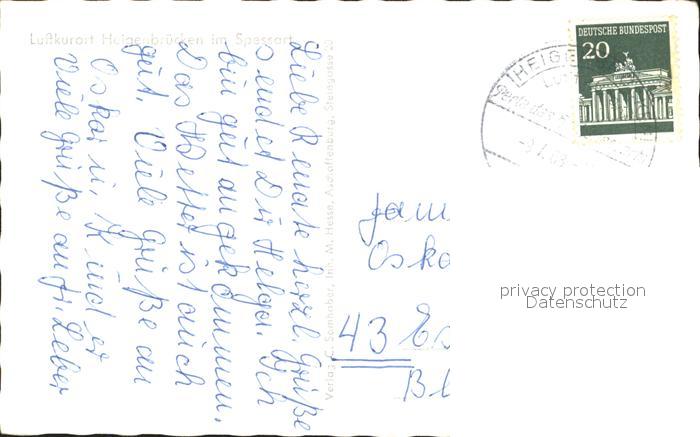 Luftkurort Heigenbrücken im Spessart
Liebe Renate herzl. Grüße
sendet Dir Helga. Ich
bin gut angekommen.
Das Wetter ist auch
gut. Viele Grüße an
Oskar u. Kinder
Viele Grüße an Fr. Leber
Verlag G. Samhaber, Inh. M. Hesse, Aschaffenburg, Steingasse 20
DEUTSCHE BUNDESPOST
20
HEIG
Fam
Oska
43 Es
Bl
privacy protection
Datenschutz